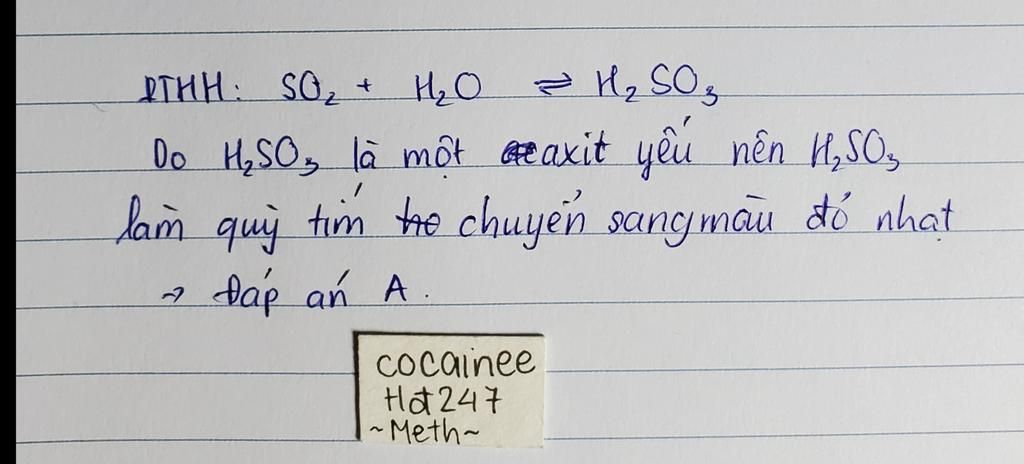 PTHH: SO₂ + H₂O ⇌ H₂SO₃
Do H₂SO₃ là một axit yếu nên H₂SO₃
làm quỳ tím chuyển sang màu đỏ nhạt
→ Đáp án A.
cocainee
Hot247
~Meth~